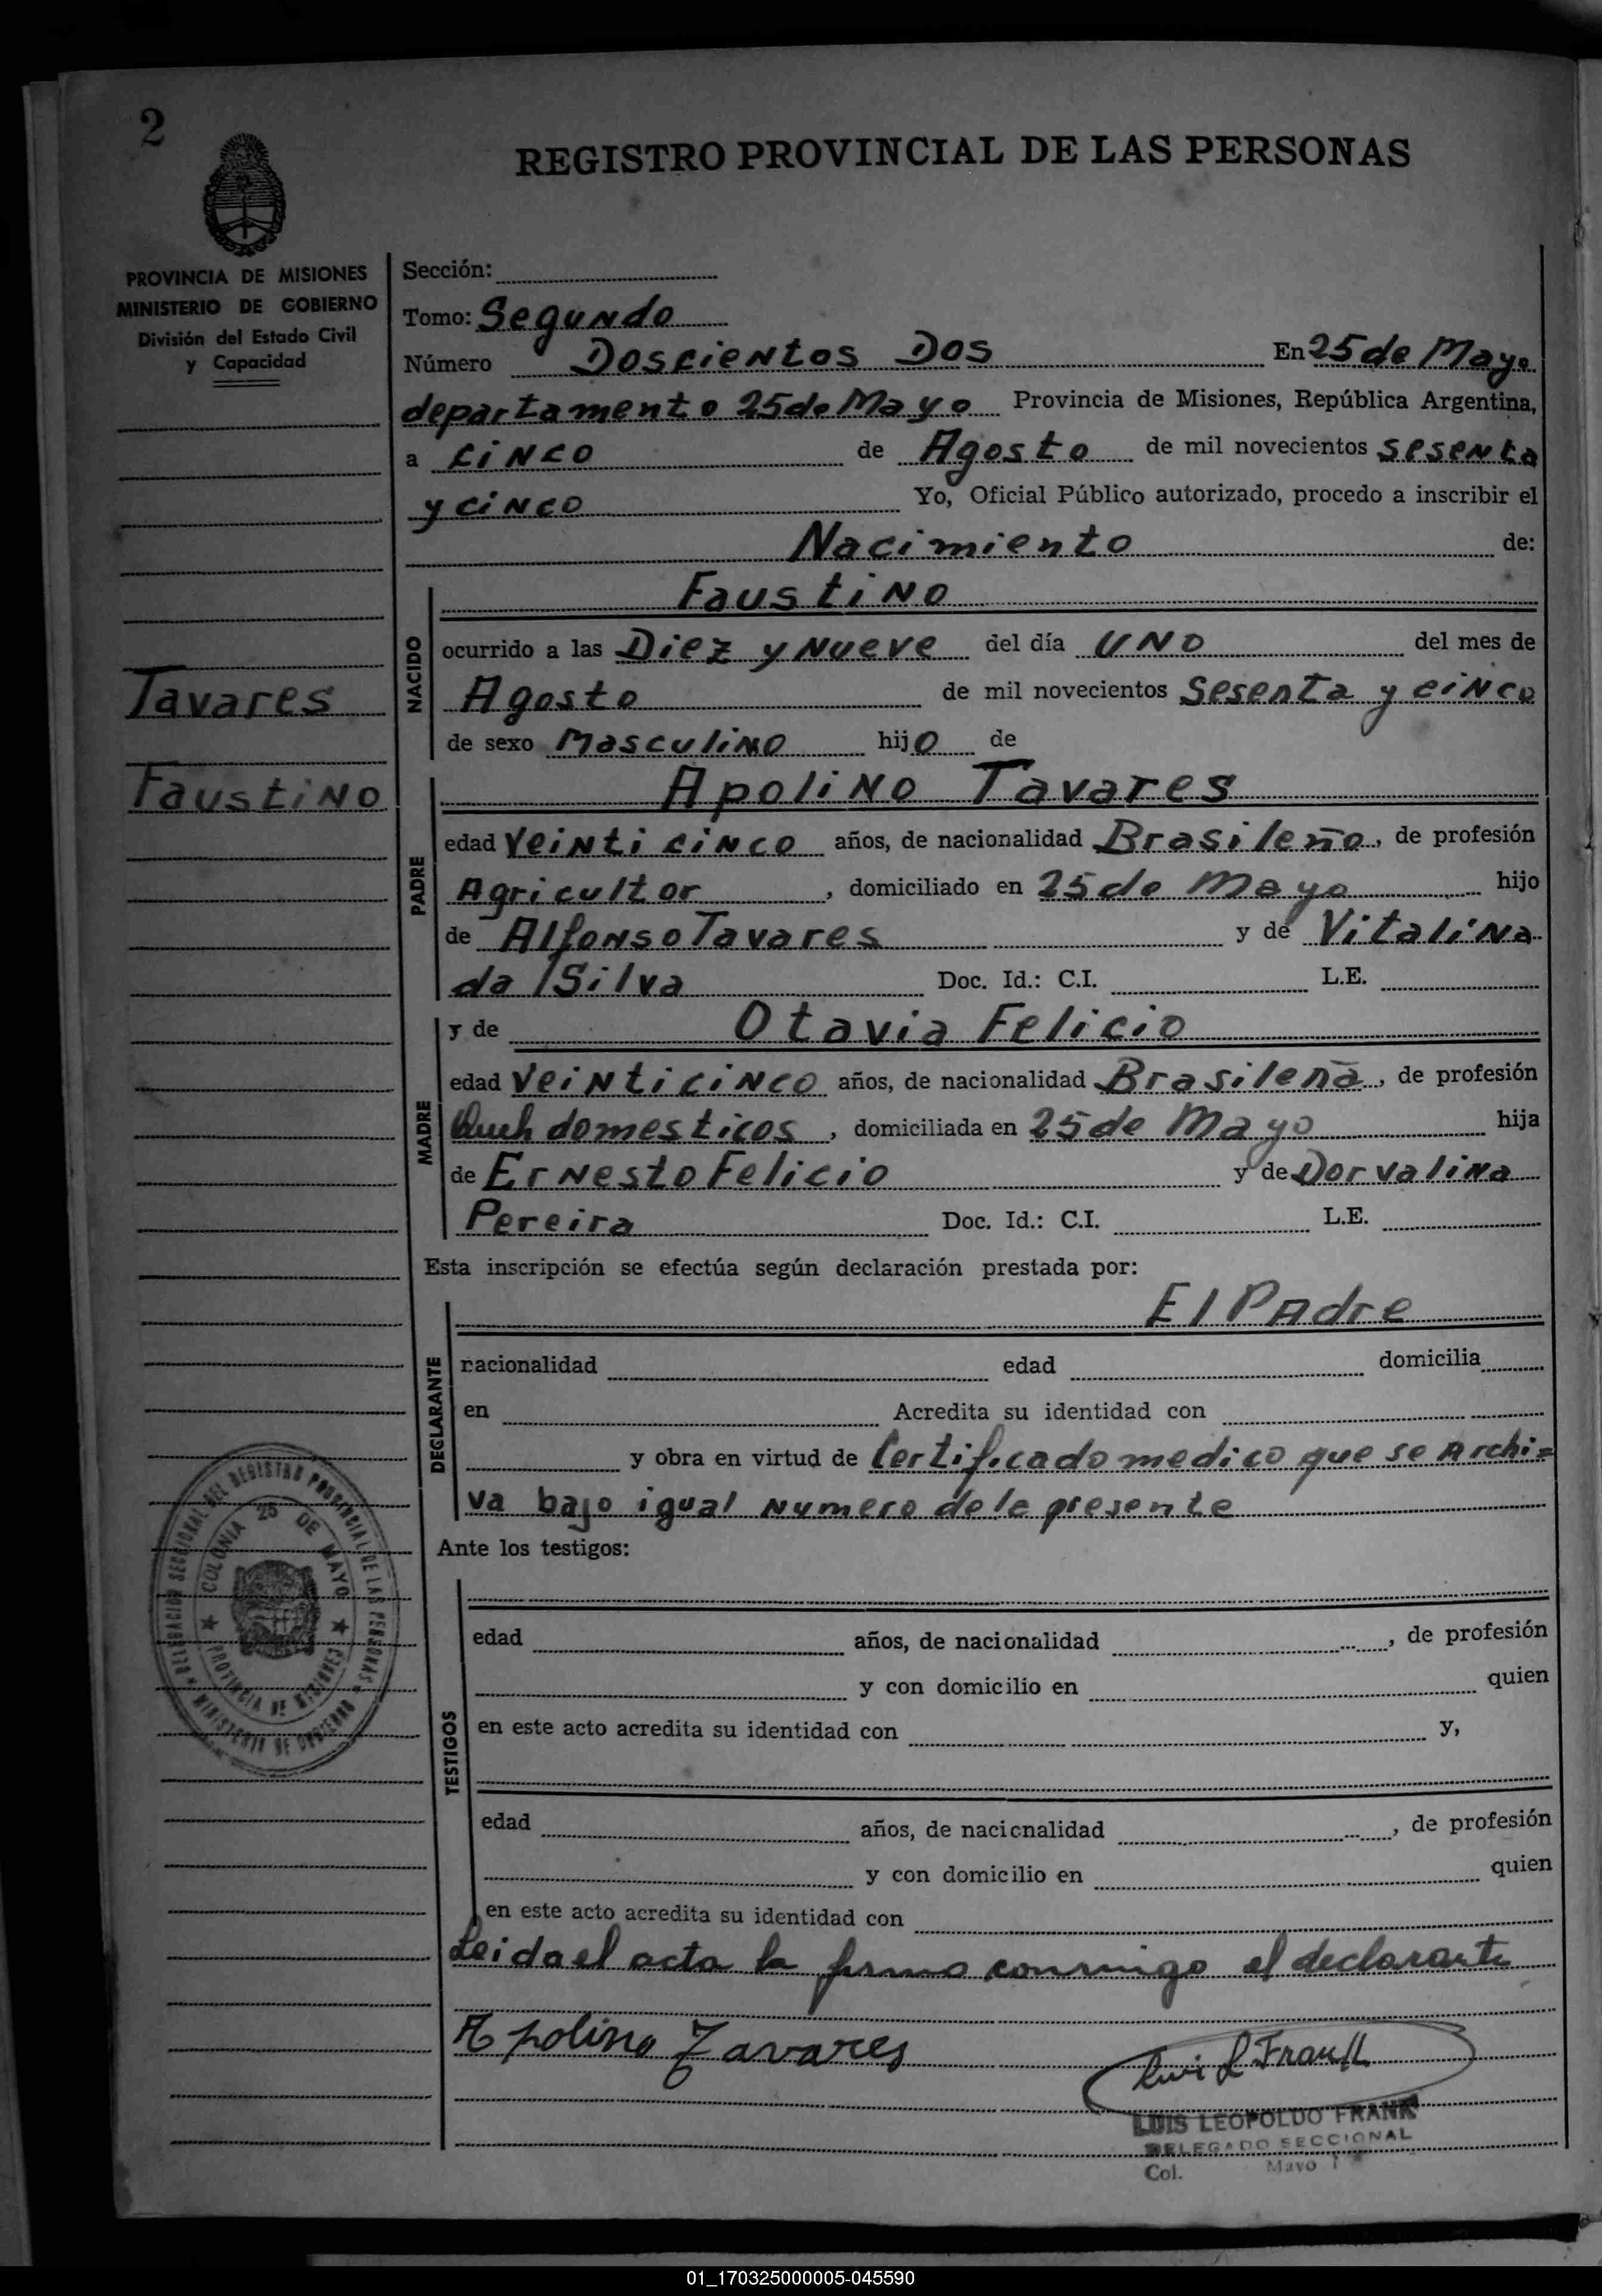 2
REGISTRO PROVINCIAL DE LAS PERSONAS
PROVINCIA DE MISIONES
MINISTERIO DE GOBIERNO
División del Estado Civil
y Capacidad
Tavares
Faustino
Sección:
Tomo: Segundo
Número Doscientos Dos En 25 de Mayo
departamento 25 de Mayo Provincia de Misiones, República Argentina,
a cinco de Agosto de mil novecientos sesenta
y cinco Yo, Oficial Público autorizado, procedo a inscribir el
Nacimiento de:
NACIDO
Faustino
ocurrido a las Diez y Nueve del día UNO del mes de
Agosto de mil novecientos Sesenta y cinco
de sexo Masculino hijo de
PADRE
Apolino Tavares
edad Veinti cinco años, de nacionalidad Brasileño, de profesión
Agricultor, domiciliado en 25 de Mayo hijo
de Alfonso Tavares y de Vitalina
da Silva Doc. Id.: C.I. L.E.
MADRE
y de Otavia Felicio
edad Veinticinco años, de nacionalidad Brasileña, de profesión
domesticos, domiciliada en 25 de Mayo hija
de Ernesto Felicio y de Dorvalina
Pereira Doc. Id.: C.I. L.E.
Esta inscripción se efectúa según declaración prestada por:
DECLARANTE
El Padre
nacionalidad edad domicilia
en Acredita su identidad con
y obra en virtud de Certificado medico que se Archi=
va bajo igual numero de le presente
Ante los testigos:
TESTIGOS
edad años, de nacionalidad , de profesión
y con domicilio en quien
en este acto acredita su identidad con y,
edad años, de nacicnalidad , de profesión
y con domicilio en quien
en este acto acredita su identidad con
Leida el acta la firma conmigo el declarante
Apolino Tavares
Luis L Frank
LUIS LEOPOLDO FRANK
DELEGADO SECCIONAL
Col. Mayo
DELEGACION SECCIONAL DEL REGISTRO PROVINCIAL DE LAS PERSONAS
MINISTERIO DE GOBIERNO
COLONIA 25 DE MAYO
PROVINCIA DE MISIONES
01_170325000005-045590